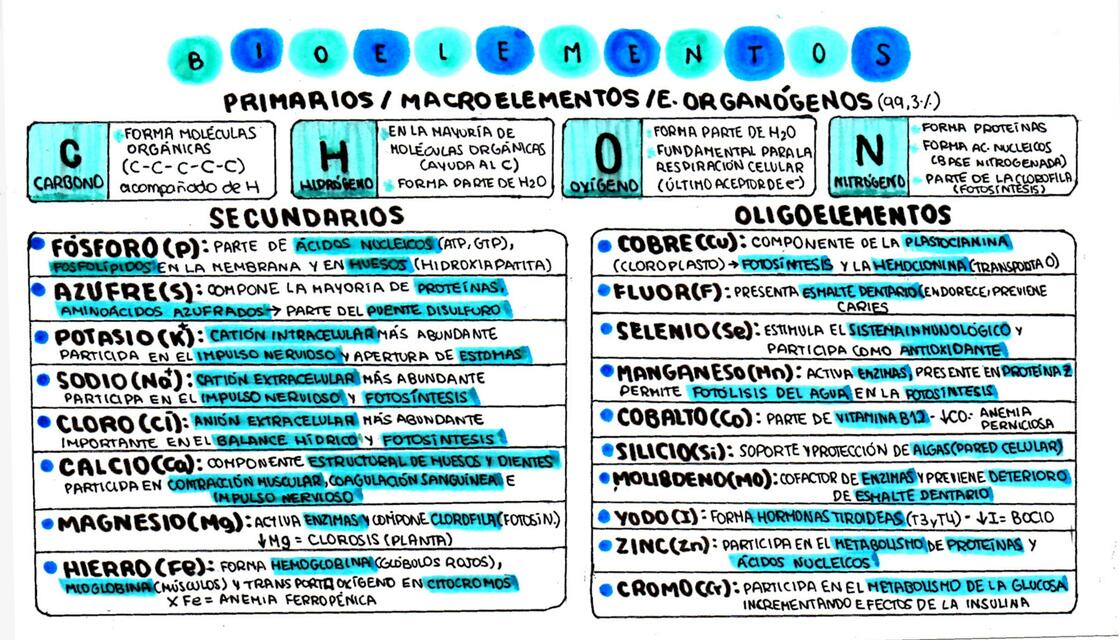 BIOELEMENTOS
PRIMARIOS / MACROELEMENTOS /E. ORGANÓGENOS (99,3%)
C
CARBONO
FORMA MOLÉCULAS
ORGÁNICAS
(C-C-C-C-C)
acompañado de H
H
HIDRÓGENO
EN LA MAYORÍA DE
MOLÉCULAS ORGÁNICAS
(AYUDA AL C)
FORMA PARTE DE H2O
O
OXÍGENO
FORMA PARTE DE H2O
FUNDAMENTAL PARA LA
RESPIRACIÓN CELULAR
(ÚLTIMO ACEPTOR DE e-)
N
NITRÓGENO
FORMA PROTEÍNAS
FORMA AC. NUCLEICOS
(BASE NITROGENADA)
PARTE DE LA CLOROFILA
(FOTOSÍNTESIS)
SECUNDARIOS
FÓSFORO (P): PARTE DE ÁCIDOS NUCLEICOS (ATP, GTP),
FOSFOLÍPIDOS EN LA MEMBRANA Y EN HUESOS (HIDROXIAPATITA)
AZUFRE(S): COMPONE LA MAYORIA DE PROTEÍNAS,
AMINOÁCIDOS AZUFRADOS → PARTE DEL PUENTE DISULFURO
POTASIO (K+): CATIÓN INTRACELULAR MÁS ABUNDANTE
PARTICIPA EN EL IMPULSO NERVIOSO Y APERTURA DE ESTOMAS
SODIO (Na+): CATIÓN EXTRACELULAR MÁS ABUNDANTE
PARTICIPA EN EL IMPULSO NERVIOSO Y FOTOSÍNTESIS
CLORO (Cl): ANIÓN EXTRACELULAR MÁS ABUNDANTE
IMPORTANTE EN EL BALANCE HÍDRICO Y FOTOSÍNTESIS
CALCIO(Ca): COMPONENTE ESTRUCTORAL DE HUESOS Y DIENTES
PARTICIPA EN CONTRACCIÓN MUSCULAR, COAGULACIÓN SANGUÍNEA E
IMPULSO NERVIOSO
MAGNESIO(Mg): ACTIVA ENZIMAS Y COMPONE CLOROFILA (FOTOSIN.)
↓Mg = CLOROSIS (PLANTA)
HIERRO (Fe): FORMA HEMOGLOBINA (GLÓBULOS ROJOS),
MIOGLOBINA (MÚSCULOS) Y TRANSPORTA OXÍGENO EN CITOCROMOS
X Fe = ANEMIA FERROPÉNICA
OLIGOELEMENTOS
COBRE(Cu): COMPONENTE DE LA PLASTOCIANINA
(CLOROPLASTO) → FOTOSÍNTESIS Y LA HEMOCIONINA (TRANSPORTA O)
FLUOR(F): PRESENTA ESMALTE DENTARIO (ENDORECE, PREVIENE
CARIES
SELENIO(Se): ESTIMULA EL SISTEMA INMUNOLÓGICO Y
PARTICIPA COMO ANTIOXIDANTE
MANGANESO(Mn): ACTIVA ENZIMAS, PRESENTE EN PROTEÍNA Z
PERMITE FOTÓLISIS DEL AGUA EN LA FOTOSÍNTESIS
COBALTO(Co): PARTE DE VITAMINA B12 - ↓CO: ANEMIA
PERNICIOSA
SILICIO(Si): SOPORTE Y PROTECCIÓN DE ALGAS (PARED CELULAR)
MOLIBDENO(Mo): COFACTOR DE ENZIMAS Y PREVIENE DETERIORO
DE ESMALTE DENTARIO
YODO (I): FORMA HORMONAS TIROIDEAS (T3 y T4) - ↓I = BOCIO
ZINC(Zn): PARTICIPA EN EL METABOLISMO DE PROTEÍNAS Y
ÁCIDOS NUCLEICOS
CROMO(Cr): PARTICIPA EN EL METABOLISMO DE LA GLUCOSA
INCREMENTANDO EFECTOS DE LA INSULINA